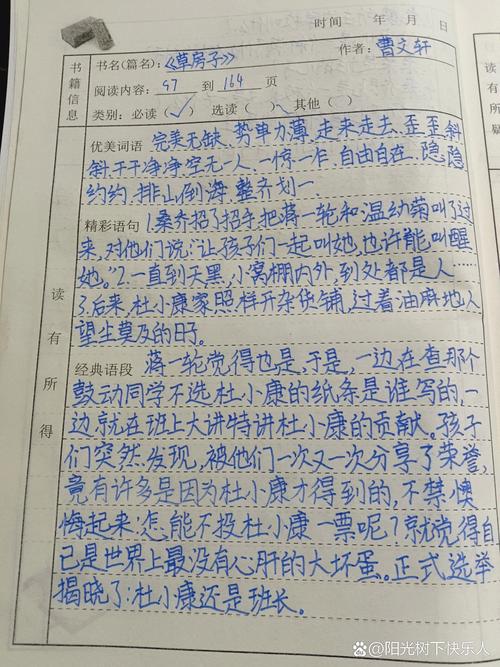 时间 年 月 日
书籍信息
书名(篇名):《草房子》 作者:曹文轩
阅读内容: 97 到 164 页
类别:必读(✓) 选读( ) 其他( )
读有所得
优美词语 完美无缺、势单力薄、走来走去、歪歪斜
斜、干干净净、空无一人、一惊一乍、自由自在、隐隐
约约、排山倒海、整齐划一
精彩语句 1.桑乔招了招手,把蒋一轮和温幼菊叫了过
来,对他们说:“让孩子们一起叫她,也许能叫醒
她。”2.一直到天黑,小窝棚内外,到处都是人……
3.后来,杜小康家照样开杂货铺,过着油麻地人
望尘莫及的日子。
经典语段 蒋一轮觉得也是,于是,一边在查那个
鼓动同学不选杜小康的纸条是谁写的,一
边就在班上大讲特讲杜小康的贡献。孩子
们突然发现,被他们一次又一次分享了荣誉,
竟有许多是因为杜小康才得到的,不禁懊
悔起来:怎能不投杜小康一票呢?就觉得自
己是世界上最没有心肝的大坏蛋。正式选举
揭晓了:杜小康还是班长。
读有
疑
@阳光树下快乐人